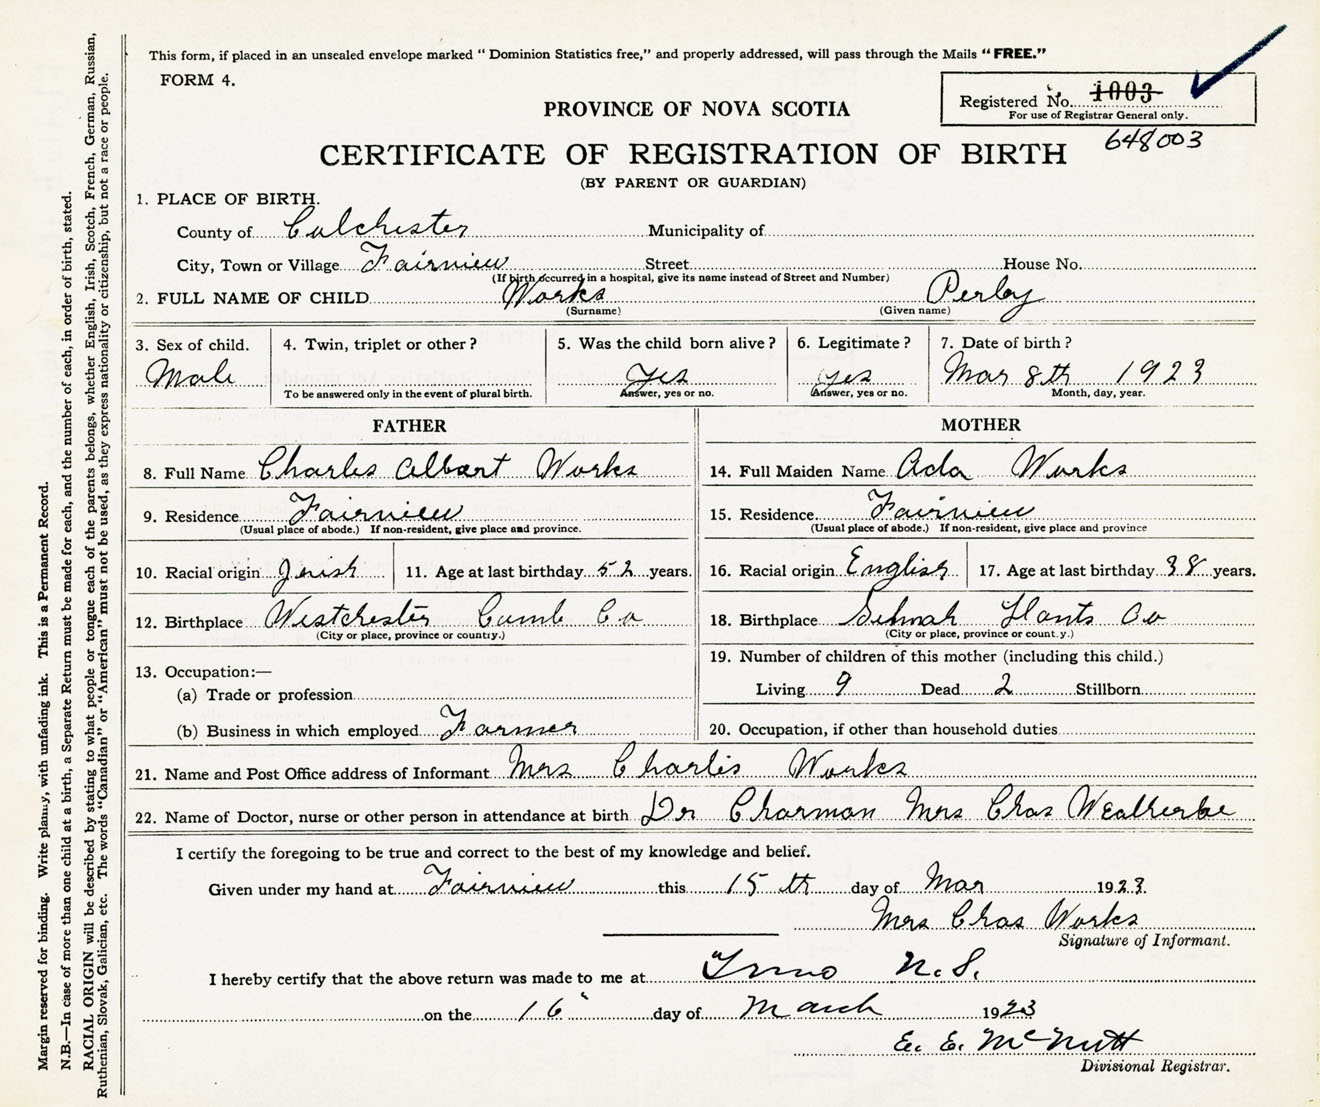 This form, if placed in an unsealed envelope marked “ Dominion Statistics free,” and properly addressed, will pass through the Mails “ FREE.”
FORM 4.
Registered No. 1003
For use of Registrar General only.
648003
PROVINCE OF NOVA SCOTIA
CERTIFICATE OF REGISTRATION OF BIRTH
(BY PARENT OR GUARDIAN)
1. PLACE OF BIRTH.
County of Colchester Municipality of
City, Town or Village Fairview Street House No.
(If birth occurred in a hospital, give its name instead of Street and Number)
2. FULL NAME OF CHILD Works Perley
(Surname) (Given name)
3. Sex of child. 4. Twin, triplet or other? 5. Was the child born alive? 6. Legitimate? 7. Date of birth?
Male Yes yes Mar 8th 1923
To be answered only in the event of plural birth. Answer, yes or no. Answer, yes or no. Month, day, year.
FATHER MOTHER
8. Full Name Charles Albert Works 14. Full Maiden Name Ada Works
9. Residence Fairview 15. Residence Fairview
(Usual place of abode.) If non-resident, give place and province. (Usual place of abode.) If non-resident, give place and province
10. Racial origin Irish 11. Age at last birthday 52 years. 16. Racial origin English 17. Age at last birthday 38 years.
12. Birthplace Westchester Cumb Co 18. Birthplace Selmah Hants Co
(City or place, province or county.) (City or place, province or county.)
13. Occupation:— 19. Number of children of this mother (including this child.)
(a) Trade or profession Living 9 Dead 2 Stillborn
(b) Business in which employed Farmer 20. Occupation, if other than household duties
21. Name and Post Office address of Informant Mrs Charlis Works
22. Name of Doctor, nurse or other person in attendance at birth Dr Charman Mrs Chas Weatherbe
I certify the foregoing to be true and correct to the best of my knowledge and belief.
Given under my hand at Fairview this 15th day of Mar 1923.
Mrs Chas Works
Signature of Informant.
I hereby certify that the above return was made to me at Truro N. S.
on the 16" day of March 1923
E. E. McNutt
Divisional Registrar.
Margin reserved for binding. Write plainly, with unfading ink. This is a Permanent Record.
N.B.—In case of more than one child at a birth, a Separate Return must be made for each, and the number of each, in order of birth, stated.
RACIAL ORIGIN will be described by stating to what people or tongue each of the parents belongs, whether English, Irish, Scotch, French, German, Russian,
Ruthenian, Slovak, Galician, etc. The words “Canadian” or “American” must not be used, as they express nationality or citizenship, but not a race or people.